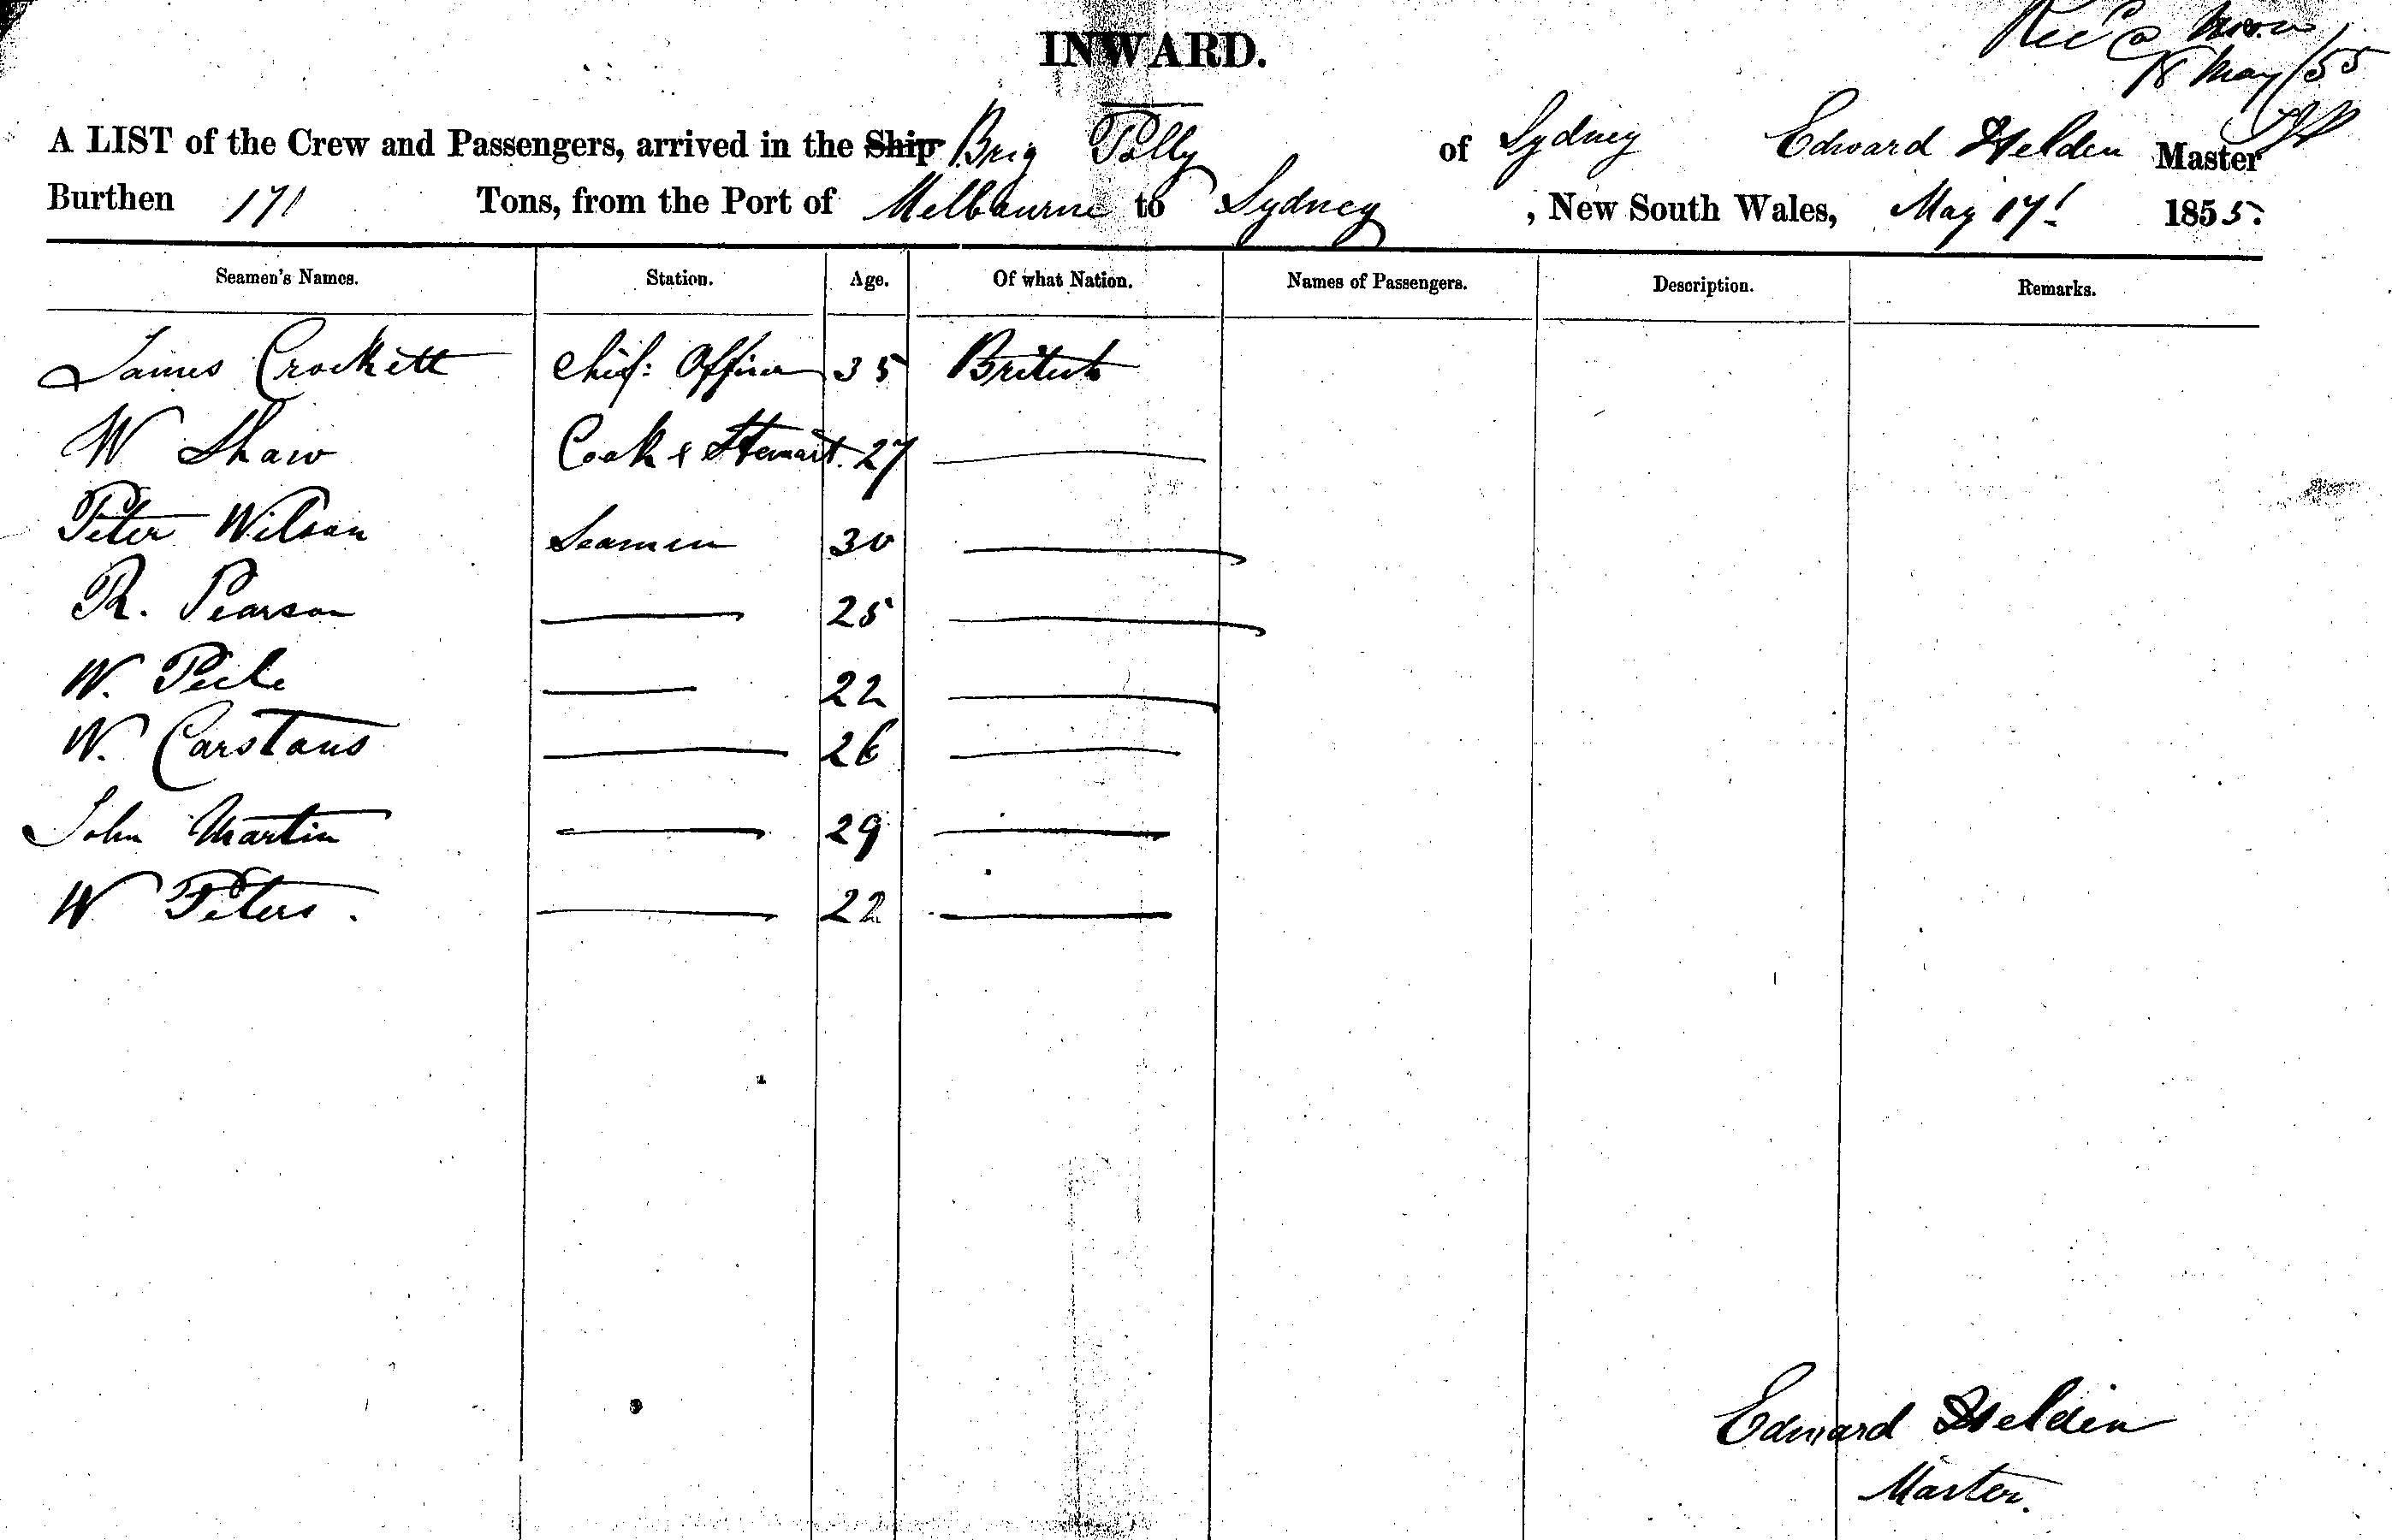 INWARD.
Rec @ Noon
18 May/55
A LIST of the Crew and Passengers, arrived in the Ship Brig Polly of Sydney Edward Helden Master
Burthen 171 Tons, from the Port of Melbourne to Sydney, New South Wales, May 17. 1855.
Seamen's Names. Station. Age. Of what Nation. Names of Passengers. Description. Remarks.
James Crockett Chief: Officer 35 British
W Shaw Cook & Stewart. 27
Peter Wilson Seamen 30
R. Pearson 25
W. Peile 22
W. Carstans 26
John Martin 29
W Peters. 22
Edward Helden
Master.